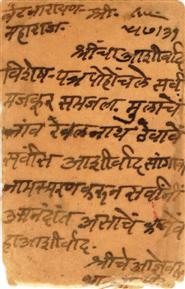 महाराज.
श्रींचा आशीर्वाद
विशेष - पत्र पोहोचले सर्व
मजकूर समजला. मुलाचें
नांव रेवलनाथ ठेवावें
सर्वांस आशीर्वाद सांगावा
नामस्मरण करून सर्वांनीं
आनंदांत असावें
हा आशीर्वाद.
श्रींचे